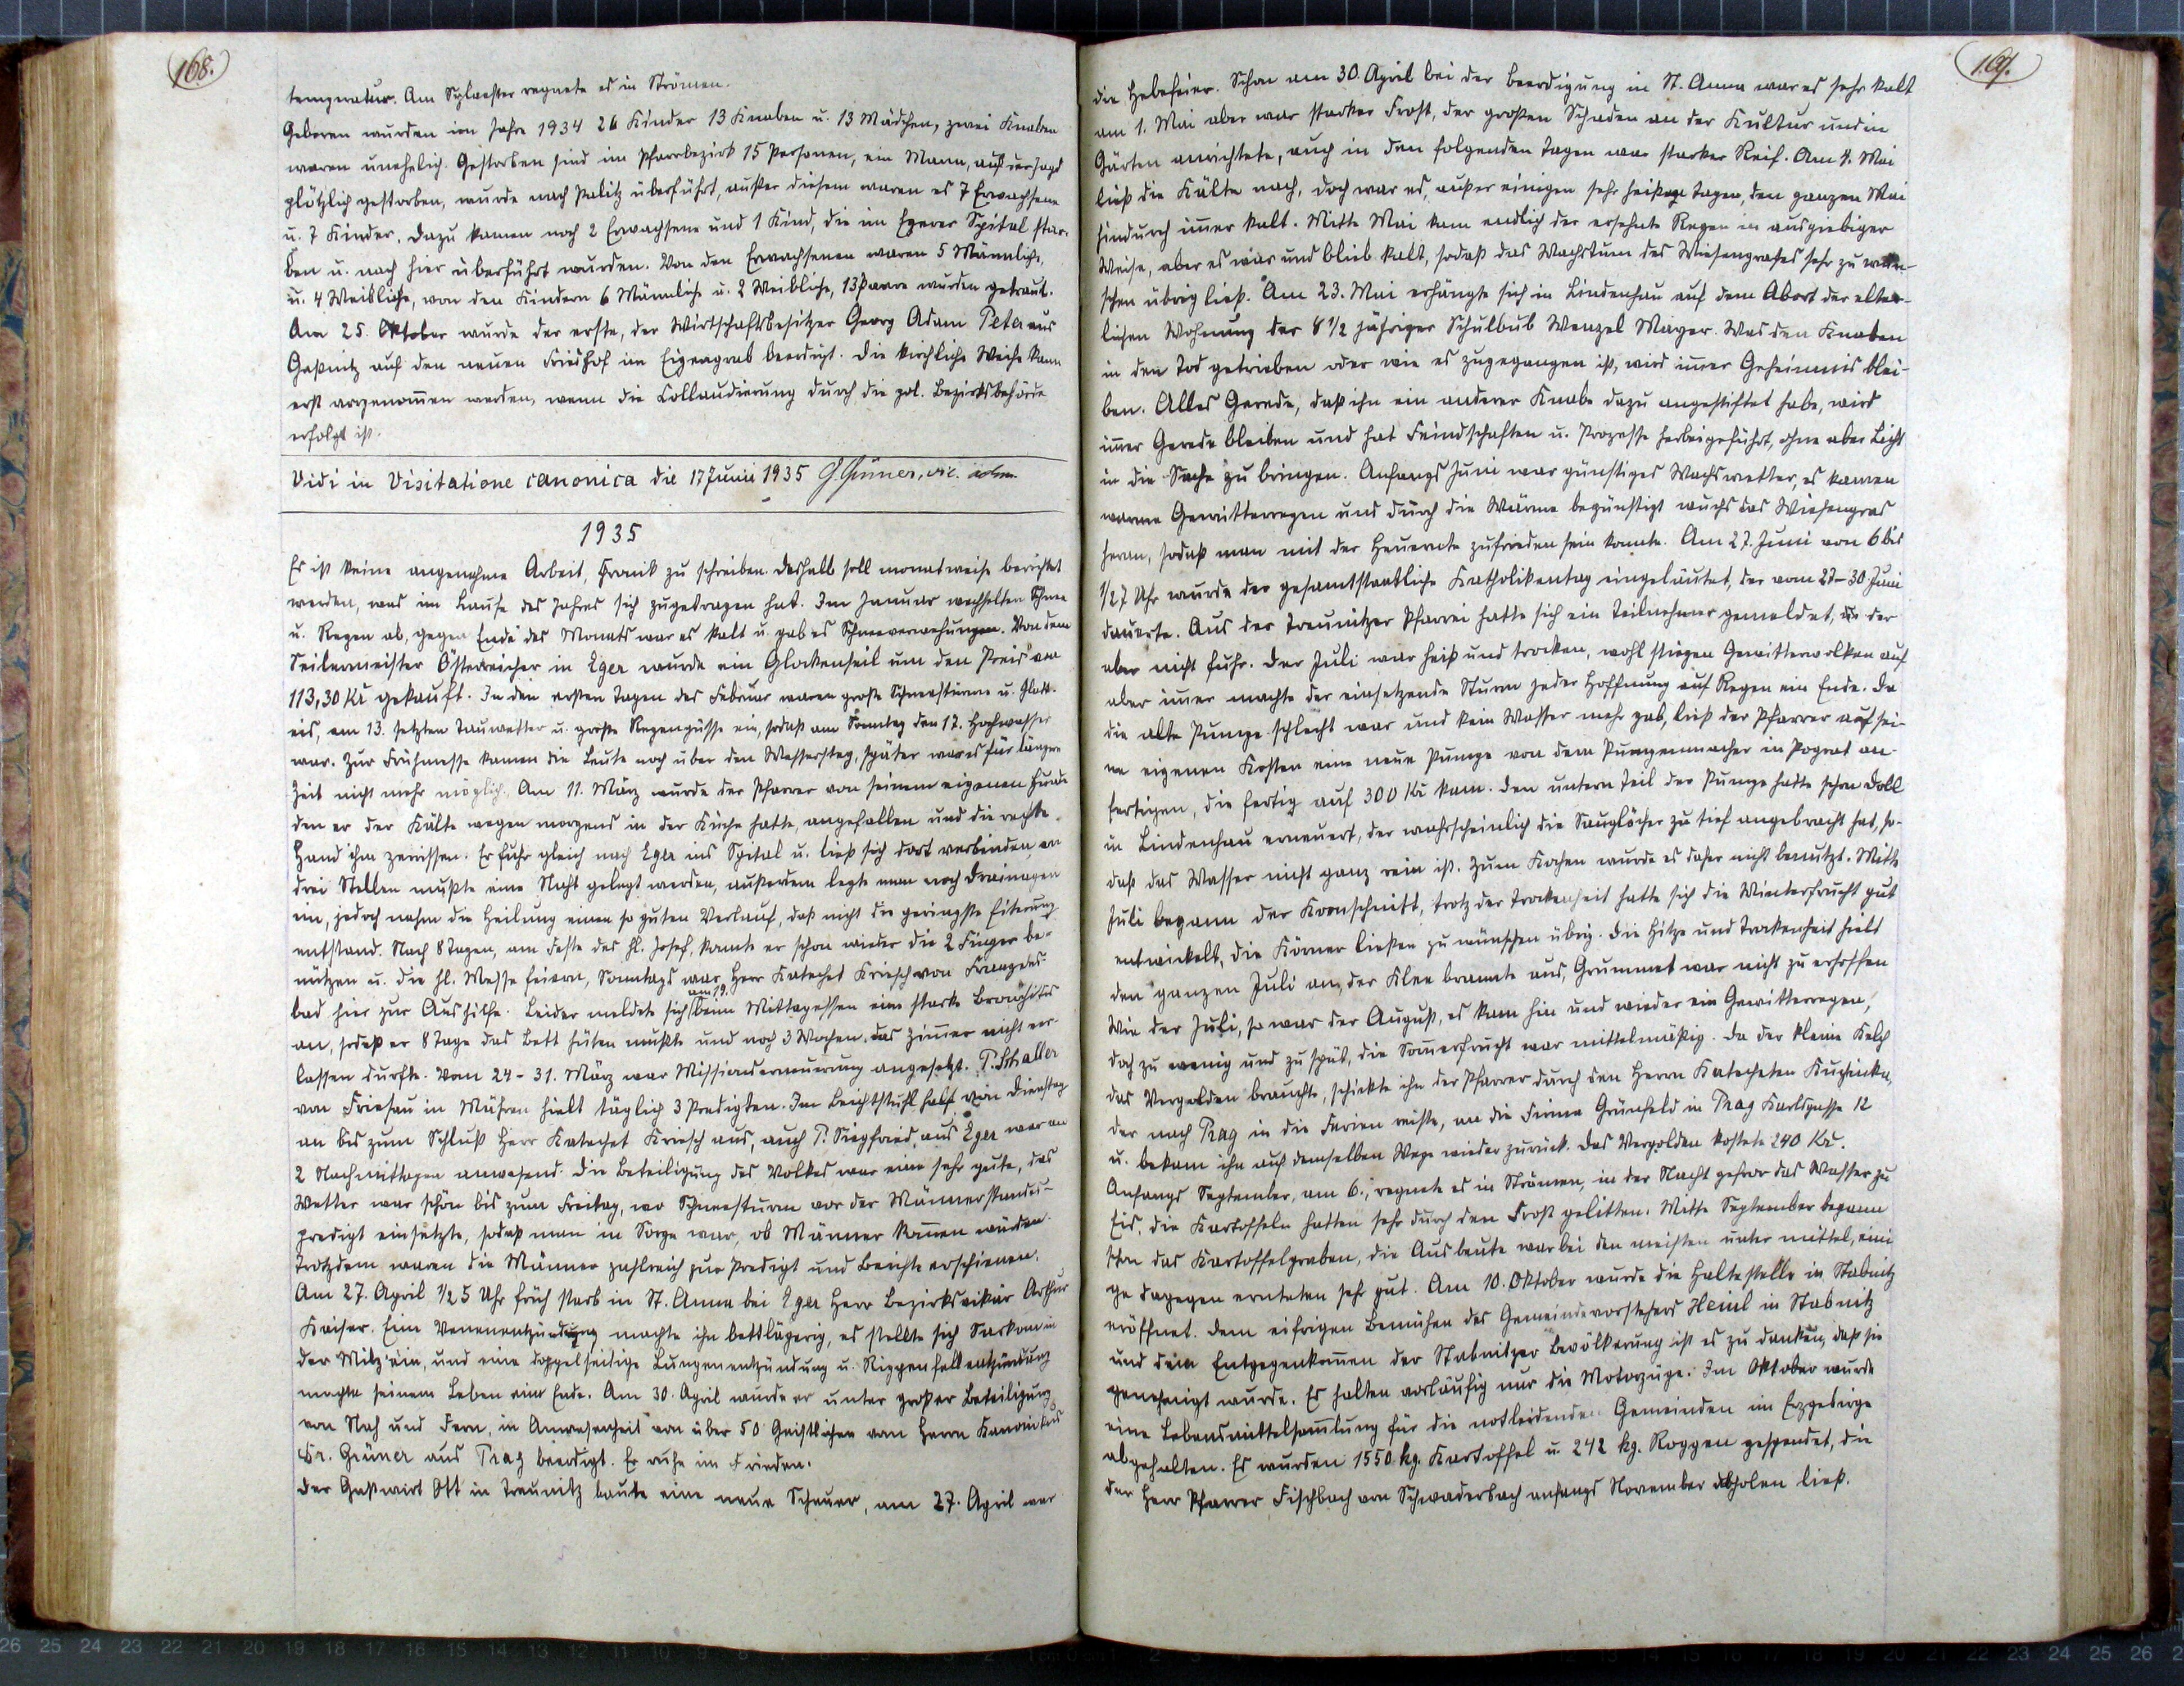 168.
temperatur. Am Sylvester regnete es in Strömen.
Geboren wurden im Jahre 1934 26 Kinder 13 Knaben u. 13 Mädchen, zwei Knaben
waren unehelich. Gestorben sind im Pfarrbezirk 15 Personen, ein Mann,
plötzlich gestorben, wurde nach Palitz überführt, außer diesem waren es 7 Erwachsene
u. 7 Kinder. Dazu kamen noch 2 Erwachsene und 1 Kind, die im Egerer Spital star-
ben u. nach hier überführt wurden. Von den Erwachsenen waren 5 Männliche,
u. 4 Weibliche, von den Kindern 6 Männliche u. 2 Weibliche, 13 Paare wurden getraut.
Am 25. Oktober wurde der erste, der Wirtschaftsbesitzer Georg Adam Peter aus
Gaßnitz auf den neuen Friedhof im Eigengrab beerdigt. Die kirchliche Weihe kann
erst vorgenom̄en werden, wenn die Collaudierung durch die pol. Bezirksbehörde
erfolgt ist.
Vidi in Visitatione canonica die 17 Junii 1935 G. Grüner, vic. adm.
1935
Es ist keine angenehme Arbeit, Chronik zu schreiben. Deshalb soll monatweise berichtet
werden, was im Laufe des Jahres sich zugetragen hat. Im Januar wechselten Schnee
u. Regen ab, gegen Ende des Monats war es kalt u. gab es Schneeverwehungen. Von dem
Seilermeister Österreicher in Eger wurde ein Glockenseil um den Preis von
113,30 Kč gekauft. In den ersten Tagen des Februar waren große Schneestürme u. Glatt-
eis, am 13. setzten Tauwetter u. große Regengüsse ein, sodaß am Sonntag den 17. Hochwasser
war. Zur Frühmesse kamen die Leute noch über den Wassersteg, später war es für längere
Zeit nicht mehr möglich. Am 11. März wurde der Pfarrer von seinem eigenen Hunde
den er der Kälte wegen morgens in der Küche hatte, angefallen und die rechte
Hand ihm zerrissen. Er fuhr gleich nach Eger ins Spital u. ließ sich dort verbinden, an
drei Stellen mußte eine Naht gelegt werden, außerdem legte man noch Drainagen
ein, jedoch nahm die Heilung einen so guten Verlauf, daß nicht die geringste Eiterung
entstand. Nach 8 Tagen, am Feste des hl. Josef, konnte er schon wieder die 2 Finger be-
nützen u. die hl. Messe feiern, Sonntags war Herr Katechet Kriesch von Franzens-
bad hier zur Aushilfe. Leider meldete sich am 19. beim Mittagessen eine starke Bronchitis
an, sodaß er 8 Tage das Bett hüten mußte und noch 3 Wochen das Zim̄er nicht ver-
lassen durfte. Vom 24-31. März war Missionserneuerung angesetzt. P. Schaller
von Friesau in Mähren hielt täglich 3 Predigten. Im Beichtstuhl half von Dienstag
an bis zum Schluß Herr Katechet Kriesch aus, auch P. Siegfried aus Eger war an
2 Nachmittagen anwesend. Die Beteiligung des Volkes war eine sehr gute, das
Wetter war schön bis zum Freitag, wo Schneesturm vor der Männerstandes-
predigt einsetzte, sodaß man in Sorge war, ob Männer kom̄en würden.
Trotzdem waren die Männer zahlreich zur Predigt und Beichte erschienen.
Am 27. April ½5 Uhr früh starb in St. Anna bei Eger Herr Bezirksvikär Arthur
Kaiser. Eine Venenentzündung machte ihn bettlägerig, es stellte sich Sarkom in
der Milz ein, und eine doppelseitige Lungenentzündung u. Rippenfellentzündung
machte seinem Leben ein Ende. Am 30. April wurde er unter großer Beteiligung
von Nah und Fern, in Anwesenheit von über 50 Geistlichen vom Herrn Kanonikus
Dr. Grüner aus Prag beerdigt. Er ruhe im Frieden.
Der Gastwirt Ott in Treunitz baute eine neue Scheuer, am 27. April war
169.
die Hebefeier. Schon am 30. April bei der Beerdigung in St. Anna war es sehr kalt
am 1. Mai aber war starker Frost, der großen Schaden an der Kultur und in
Gärten anrichtete, auch in den folgenden Tagen war starker Reif. Am 4. Mai
ließ die Kälte nach, doch war es, außer einigen sehr heißen Tagen, den ganzen Mai
hindurch im̄er kalt. Mitte Mai kam endlich der ersehnte Regen in ausgiebiger
Weise, aber es war und blieb kalt, sodaß das Wachstum des Wiesengrases sehr zu wün-
schen übrig ließ. Am 23. Mai erhängte sich in Lindenhau auf dem Abort der elter-
lichen Wohnung der 8½ jähriger Schulbub Wenzel Mayer. Was den Knaben
in den Tod getrieben oder wie es zugegangen ist, wird im̄er Geheimnis blei-
ben. Alles Gerede, daß ihn ein anderer Knabe dazu angestiftet habe, wird
im̄er Gerede bleiben und hat Feindschaften u. Prozesse herbeigeführt, ohne aber Licht
in die Sache zu bringen. Anfangs Juni war günstiges Wachswetter, es kamen
warme Gewitterregen und durch die Wärme begünstigt wuchs das Wiesengras
heran, sodaß man mit der Heuernte zufrieden sein konnte. Am 27. Juni von 6 bis
½7 Uhr wurde der gesamtstaatliche Katholikentag eingeläutet, der vom 27-30 Juni
dauerte. Aus der Treunitzer Pfarrei hatte sich ein Teilnehmer gemeldet, der
aber nicht fuhr. Der Juli war heiß und trocken, wohl stiegen Gewitterwolken auf
aber im̄er machte der einsetzende Sturm jeder Hoffnung auf Regen ein Ende. Da
die alte Pumpe schlecht war und kein Wasser mehr gab, ließ der Pfarrer auf sei-
ne eigenen Kosten eine neue Pumpe von dem Pumpenmacher in Pograt an-
fertigen, die fertig auf 300 Kč kam. Den untern Teil der Pumpe hatte schon Doll
in Lindenhau erneuert, der wahrscheinlich die Sauglöcher zu tief angebracht hat, so-
daß das Wasser nicht ganz rein ist. Zum Kochen wurde es daher nicht benutzt. Mitte
Juli begann der Kornschnitt, trotz der Trockenheit hatte sich die Winterfrucht gut
entwickelt, die Körner ließen zu wünschen übrig. Die Hitze und Trockenheit hielt
den ganzen Juli an, der Klee brannte aus, Grummet war nicht zu erhoffen
Wie der Juli, so war der August, es kam hin und wieder ein Gewitterregen,
doch zu wenig und zu spät, die Som̄erfrucht war mittelmäßig. Da der kleine Kelch
das Vergolden brauchte, schickte ihn der Pfarrer durch den Herrn Katecheten
der nach Prag in die Ferien reiste, an die Firma Grünfeld in Prag Karlsgasse 12
u. bekam ihn auf demselben Wege wieder zurück. Das Vergolden kostete 240 Kč.
Anfangs September, am 6., regnete es in Strömen, in der Nacht gefror das Wasser zu
Eis, die Kartoffeln hatten sehr durch den Frost gelitten. Mitte September begann
schon das Kartoffelgraben, die Ausbeute war bei den meisten unter mittel, eini
ge dagegen ernteten sehr gut. Am 10. Oktober wurde die Haltestelle in Stabnitz
eröffnet. Dem eifrigen Bemühen des Gemeindevorstehers Heinl in Stabnitz
und dem Entgegenkom̄en der Stabnitzer Bevölkerung ist es zu danken, daß sie
genehmigt wurde. Es halten vorläufig nur die Motorzüge. Im Oktober wurde
eine Lebensmittelsam̄lung für die notleidenden Gemeinden im Erzgebirge
abgehalten. Es wurden 1550 kg. Kartoffel u. 242 kg. Roggen gespendet, die
der Herr Pfarrer Fischbach von Schwaderbach anfangs November abholen ließ.
26 25 24 23 22 21 20 19 18 17 16 15 14 13 12 11 10
12 13 14 15 16 17 18 19 20 21 22 23 24 25 26